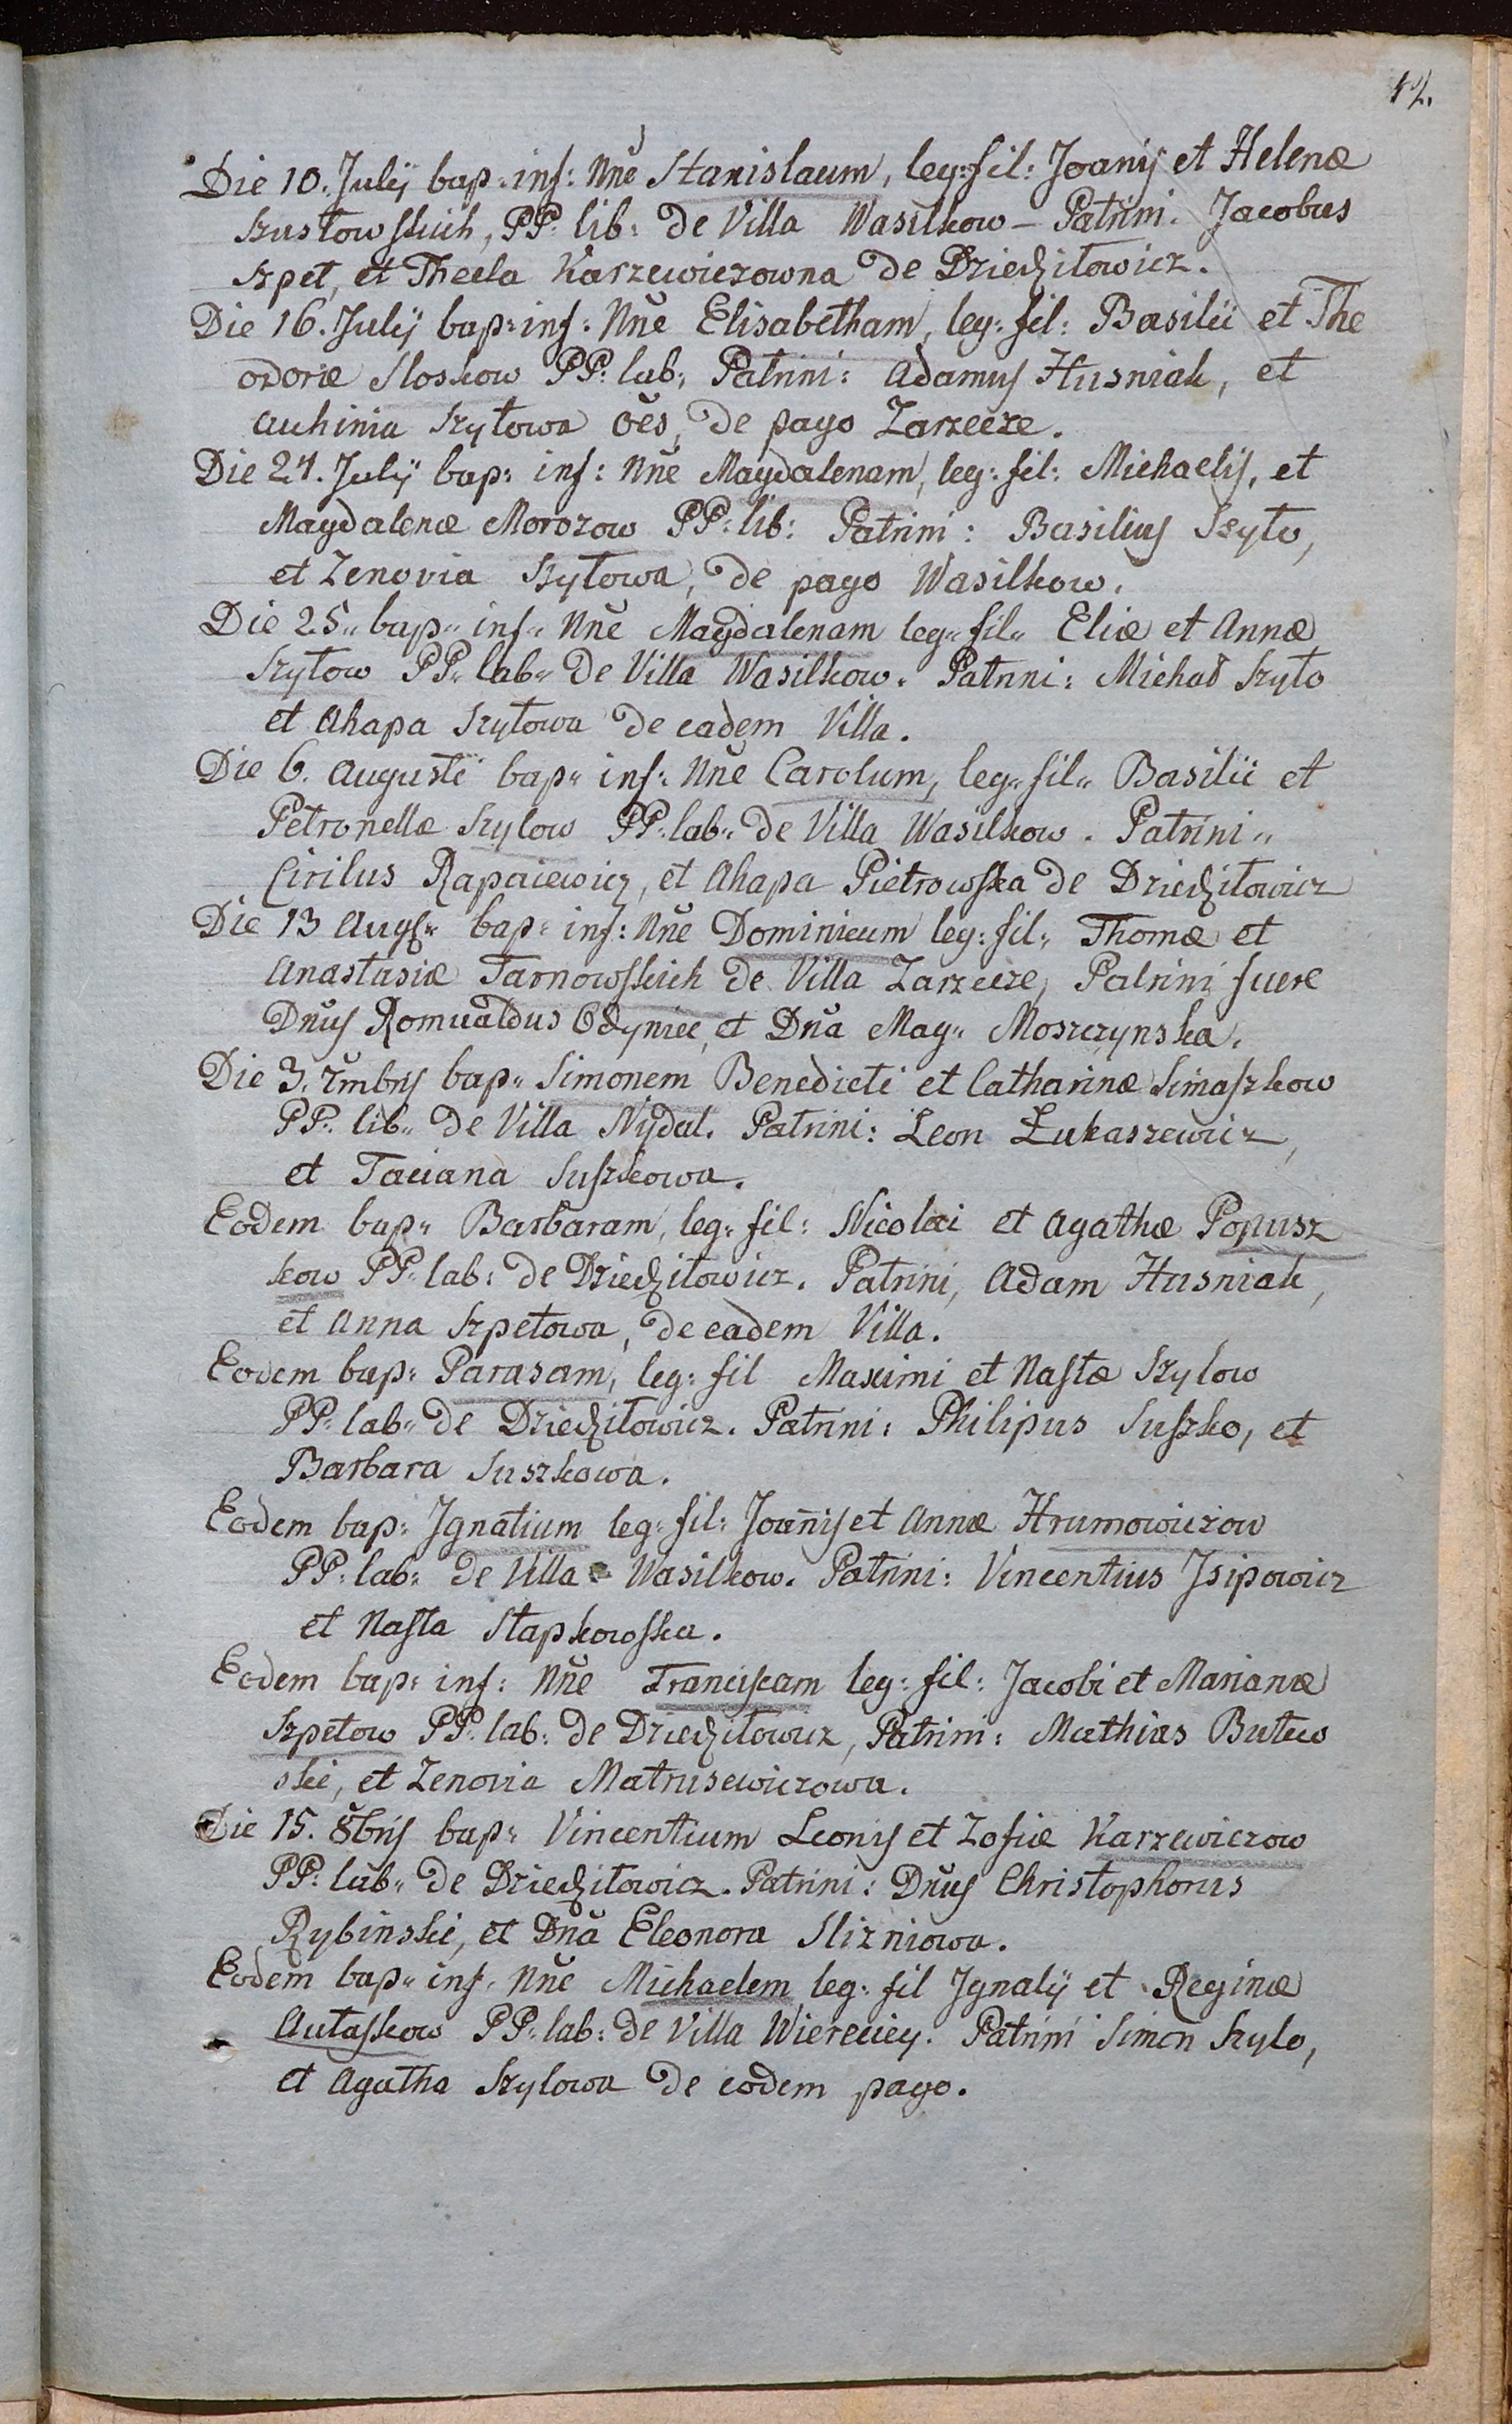 12.
Die 10. Julij bap: inf: Nnĕ Stanislaum, leg: fil: Joanij et Helenæ
Szustowskich, PP. lib: de Villa Wasilkow – Patrini. Jacobus
Szpet, et Thecla Karzewiczowna de Dziedziłowicz.
Die 16. Julij bap: inf: Nnĕ Elisabetham, leg: fil: Basilii et The
odoriæ Sloskow PP: lab: Patrini: Adamus Husniak, et
Auhinia Szyłowa oẽs, de pago Zarzecze.
Die 21. Julij bap: inf: Nnĕ Magdalenam, leg: fil: Michaelis, et
Magdalenæ Morozow PP: lib: Patrini: Basilius Szyło,
et Zenovia Szyłowa, de pago Wasilkow.
Die 25„ bap„ inf„ Nnĕ Magdalenam leg„ fil„ Eliæ et Annæ
Szyłow PP„ lab„ de Villa Wasilkow. Patrini: Michał Szyło
et Ahapa Szyłowa de eadem Villa.
Die 6. Augusti bap„ inf: Nnĕ Carolum, leg„ fil„ Basilii et
Petronellæ Szylow PP: lab„ de Villa Wasilkow. Patrini„
Cirilus Rapaiewicz, et Ahapa Pietrowska de Dziedziłowicz
Die 13 Augs„ bap„ inf: Nnĕ Dominicum leg: fil„ Thomæ et
Anastasiæ Tarnowskich de Villa Zarzecze, Patrini fuere
Dnŭs Romualdus Odyniec, et Dnă Mag„ Moszczynska.
Die 3. 7mbris bap„ Simonem Benedicti et Catharinæ Simaszkow
PP. lib„ de Villa Nydal. Patrini: Leon Łukaszewicz,
et Taciana Suszkowa.
Eodem bap„ Barbaram, leg„ fil: Nicolai et Agathæ Popusz
kow PP„ lab: de Dziedziłowicz. Patrini, Adam Husniak,
et Anna Szpetowa, de eadem Villa.
Eodem bap: Parasam, leg: fil Maximi et Nastæ Szylow
PP: lab„ de Dziedziłowicz. Patrini: Philipus Suszko, et
Barbara Suszkowa.
Eodem bap: Ignatium leg: fil: Joan̄is et Annæ Hrumowiczow
PP: lab: de Villa Wasilkow. Patrini: Vincentius Isipowicz
et Nasta Stapkowska.
Eodem bap: inf: Nnĕ Franciscam leg: fil: Jacobi et Marianæ
Szpetow PP: lab: de Dziedziłowicz, Patrini: Mathias Butew
ski, et Zenovia Matrusewiczowa.
Die 15. 8brĭs bap: Vincentium Leonis et Zofiæ Karzewiczow
PP: lab„ de Dziedziłowicz. Patrini: Dnŭs Christophorus
Rybinski, et Dnă Eleonora Slizniowa.
Eodem bap„ inf. Nnĕ Michaelem, leg: fil Ignatij et Reginæ
Autaskow PP: lab: de Villa Wiereciey. Patrini Simon Szylo,
et Agatha Szylowa de eodem pago.